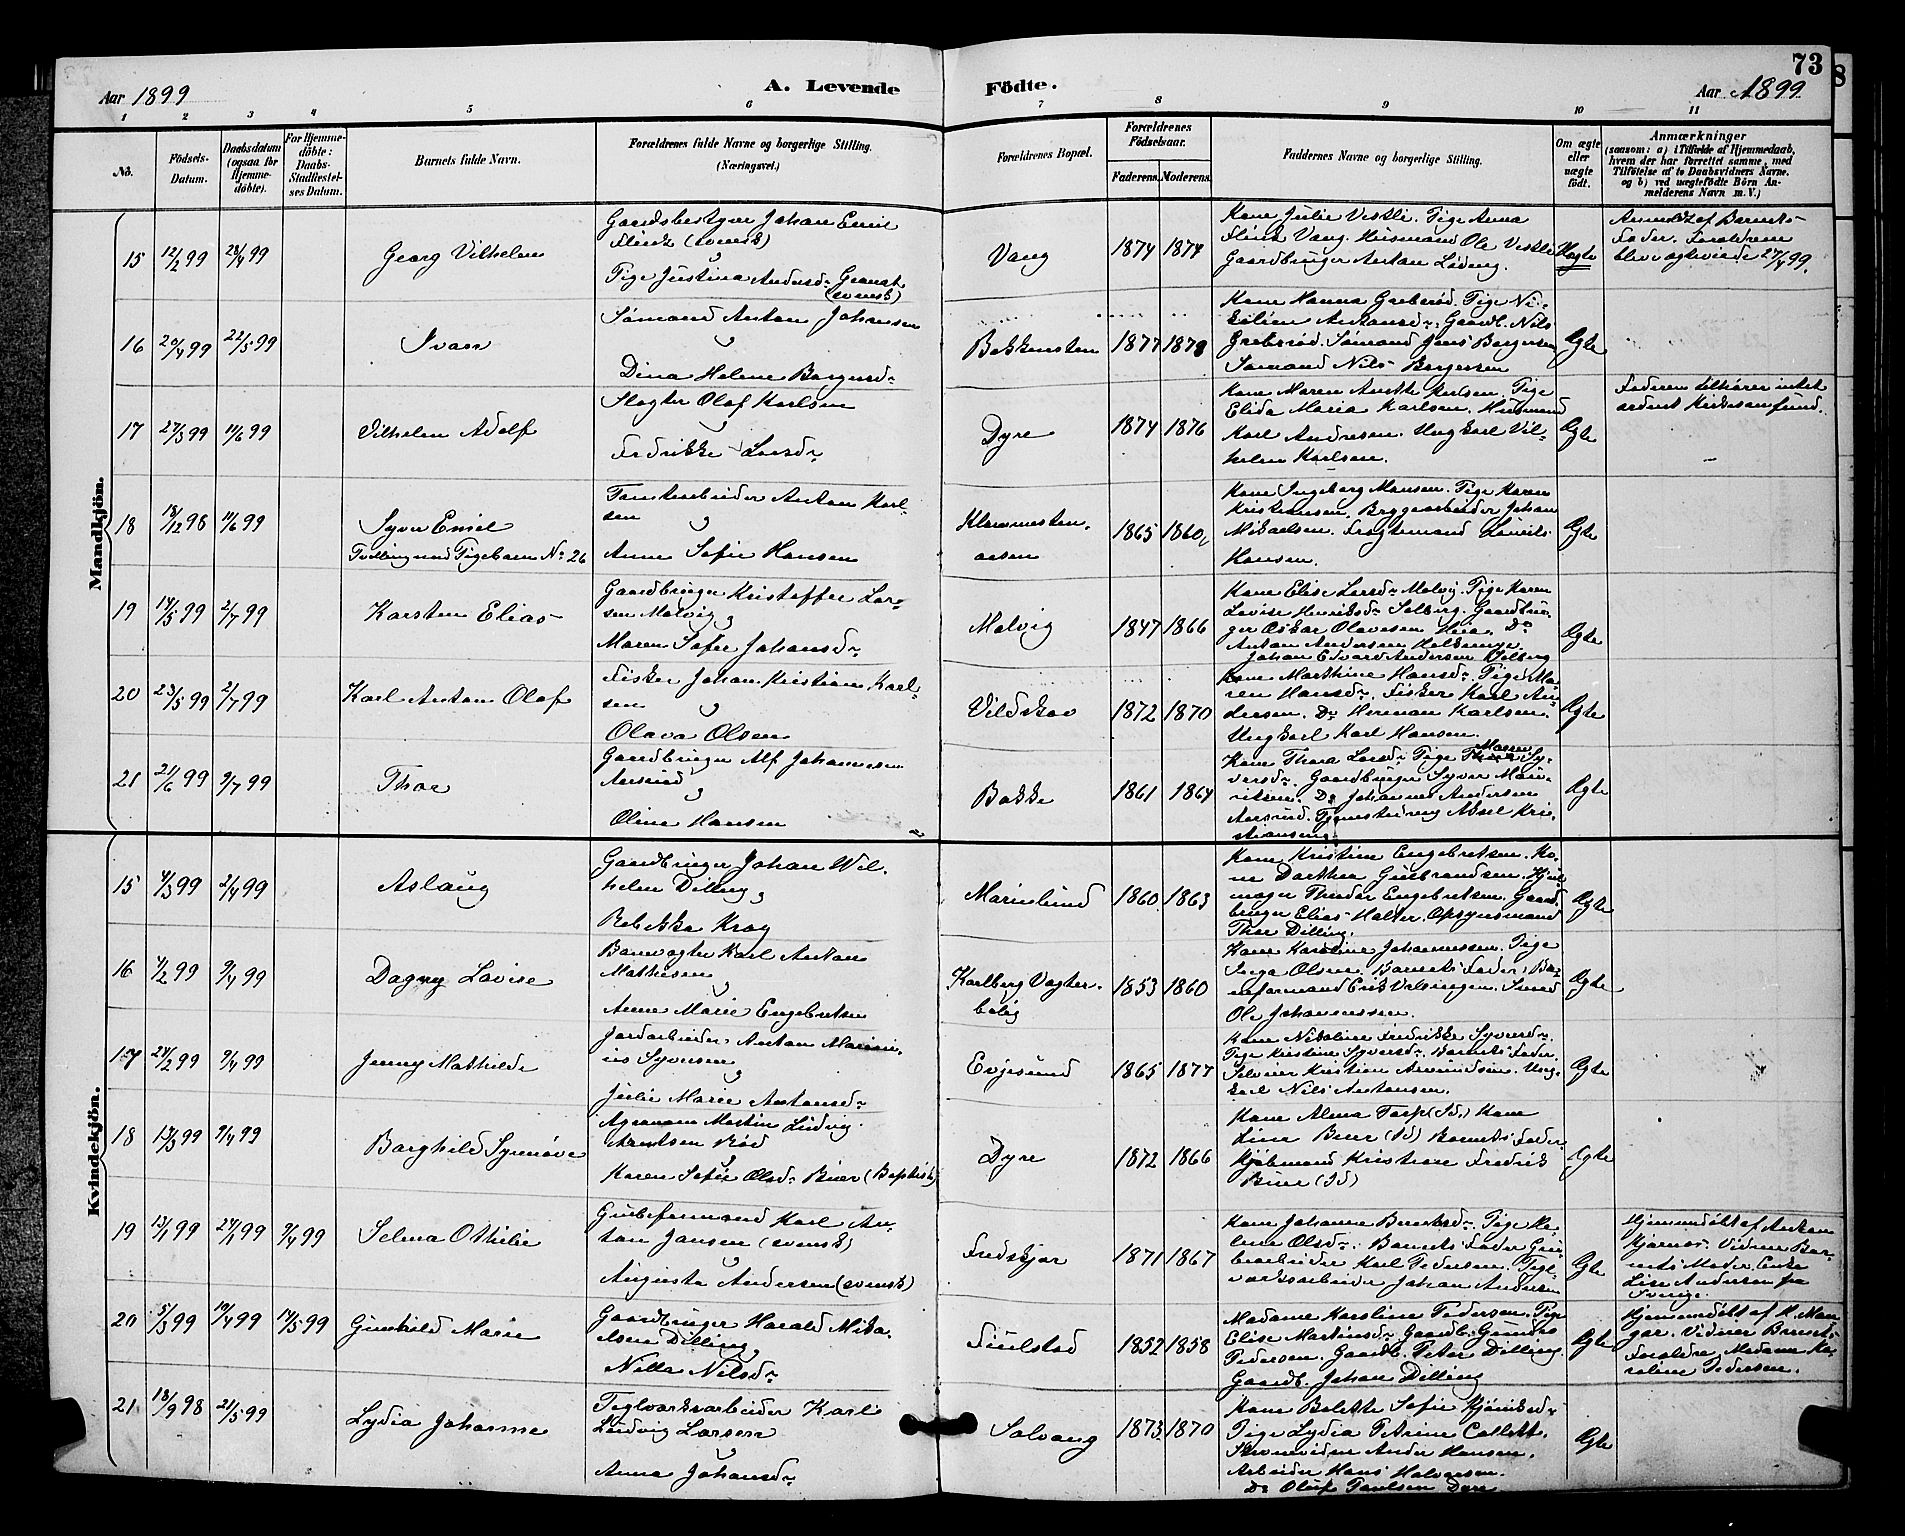 73
Aar 1899
A. Levende
Födte.
Aar 1899
1 2 3 4 5 6 7 8 9 10 11
No.
Födsels-
Datum.
Daabsdatum
(ogsaa for
Hjemme-
döbte).
For Hjemme-
döbte:
Daabs-
Stadfæstel-
ses Datum.
Barnets fulde Navn.
Forældrenes fulde Navne og borgerlige Stilling.
(Næringsvei.)
Forældrenes Bopæl.
Forældrenes
Födselsaar.
Faderens. Moderens.
Faddernes Navne og borgerlige Stilling.
Om ægte
eller
uægte
födt.
Anmærkninger
(saasom: a) i Tilfælde af Hjemmedaab,
hvem der har forrettet samme, med
Tilföielse af to Daabsvidners Navne.
og b) ved uægtefödte Börn An-
melderens Navn m. V.)
Mandkjön.
15 12/2 99 23/4 99
Georg Vilhelm
Gaardsbestyrer Johan Emil
Flink (svensk)
Pige Justina Andersd. Granat
(svensk)
Vang
1874 1874
Kone Julie Vestli. Pige Anna
Flink Vang. Husmand Ole Vestli
Gaardbruger Anton Löding.
Uægte
Anmeldt af Barnets
Fader. Forældrene
blev ægteviede 27/4 99.
16 20/4 99 22/5 99
Ivar
Sömand Anton Johansen
Dina Helene Borgersd.
Bakkensten
1877 1878
Kone Hanna Greberöd. Pige Ni-
koline Antonsd. Gaardb. Nils
Greberöd. Sömand Jens Borgersen
Sömand Nils Borgersen
Ægte
17 27/3 99 11/6 99
Vilhelm Adolf
Slagter Olaf Karlsen
Fredrikke Larsd.
Dyre
1874 1876
Kone Maren Anette Karlsen. Pige
Elida Maria Karlsen. Husmand
Karl Andresen. Ungkarl Vil-
helm Karlsen.
Ægte
Faderen tilhører intet
ordent. Kirkesamfund.
18 18/12 98 11/6 99
Syver Emil
Tvilling med Pigebarn No 26
Tomtearbeider Anton Karl-
sen
Anne Sofie Hansen
1865 1860
Kone Ingeborg Hansen. Pige Karen
Kristiansen. Bryggearbeider Johan
Mikaelsen. Fragtemand Laurits
Hansen.
Ægte
19 14/5 99 2/7 99
Karsten Elias
Gaardbruger Kristoffer Lar-
sen Molvig
Maren Sofie Johansd.
Molvig
1847 1866
Kone Elise Larsd. Molvig. Pige Karen
Lovise Henriksd. Solberg. Gaardbru-
ger Oskar Olavesen Heia. Do
Anton Andersen
Johan Edvard Andersen
Ægte
20 23/5 99 2/7 99
Karl Anton Olaf
Fisker Johan Kristian Karl-
sen
Olava Olsen
Vildskov
1872 1870
Kone Marthine Hansd. Pige Ma-
ren Hansd. Fisker Karl An-
dresen. Do Herman Karlsen.
Ungkarl Karl Hansen.
Ægte
21 21/6 99 9/7 99
Thor
Gaardbruger Alf Johannesen
Aarsrud
Oline Hansen
Bakke
1861 1864
Kone Thora Larsd. Pige Maren Sy-
versd. Gaardbruger Syver Mau-
ritsen. Do Johannes Andersen
Aarsrud. Tjenestedreng Aksel Kris-
tiansen.
Ægte
Kvindekjön.
15 4/3 99 2/4 99
Aslaug
Gaardbruger Johan Wil-
helm Dilling
Rebekka Krog
Marielund
1860 1863
Kone Kristine Engebretsen. Ko-
ne Dorthea Gulbrandsen. Hjul-
mager Theodor Engebretsen. Gaard-
bruger Elias Molter. Opsynsmand
Thor Dilling.
Ægte
16 4/2 99 9/4 99
Dagny Lovise
Banevogter Karl Anton
Mathisen
Anne Marie Engebretsen
Karlberg Vogter-
bolig
1853 1860
Kone Karoline Johannessen. Pige
Inga Olsen. Barnets Fader. Ba-
neformand Erik Smed
Ole Johannessen.
Ægte
17 24/2 99 9/4 99
Jenny Mathilde
Jordarbeider Anton Marin-
ius Syversen
Julie Marie Antonsd.
Evjesund
1865 1877
Kone Nikoline Fredrikke Syversd.
Pige Kristine Syversd. Barnets Fader.
Selveier Kristian Ung-
karl Nils Antonsen.
Ægte
18 13/3 99 9/4 99
Borghild Synnöve
Agronom Martin Ludvig
Arntsen Röd
Karen Sofie Olsd. Buer (Baptist)
Dyre
1872 1866
Kone Alma Torp (Sd.) Kone
Line Buer (Sd) Barnets Fader
Kjöbmand Kristian Fredrik
Buer (Sd)
Ægte
19 13/1 99 27/1 99 9/4 99
Selma Othilie
Grubeformand Karl An-
ton Jansen (svensk)
Augusta Andersen (svensk)
Fuđskjær
1871 1867
Kone Johanne Berntsd. Pige He-
lene Olsd. Barnets Fader Gru-
bearbeider Karl Pedersen. Tegl-
værksarbeider Johan Andersen
Ægte
Hjemmedöbt af Anton
Kjærnes. Vidner Bar-
nets Moder. Enke
Lise Andersen fra
Sverige.
20 5/3 99 19/4 99 14/5 99
Gunhild Marie
Gaardbruger Harald Mika-
elsen Dilling
Nilla Nilsd.
Fuulstad
1852 1858
Madame Karoline Pedersen. Pige
Elise Martinsd. Gaardb. Gunder
Pedersen. Gaardb. Peter Dilling.
Gaardb. Johan Dilling
Ægte
Hjemmedöbt af H. Man-
gor. Vidner Barnets
Forældre, Madame Ka-
roline Pedersen.
21 18/9 98 21/5 99
Lydia Johanne
Teglværksarbeider Karl
Ludvig Larsen
Anna Johansd.
Solvang
1873 1870
Kone Bolette Sofie
Pige Lydia Petrine Collett.
Anders Hansen.
Arbeider Hans Halvorsen.
Do Oluf Paulsen Dyre
Ægte